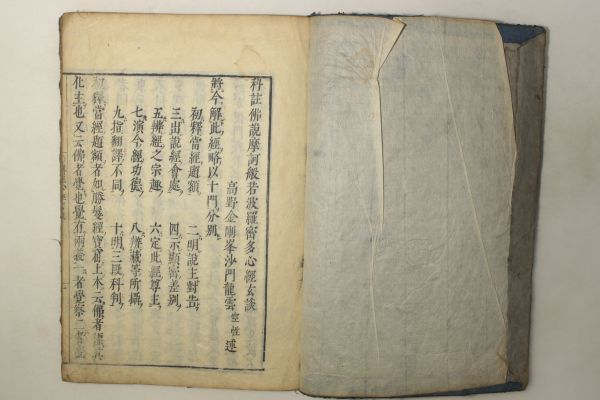 科註佛說摩訶般若波羅密多心經玄談
高野金剛峯沙門龍雲空性述
將今解此經略以十門分別
初釋當經題額 二明說主對告
三出說經會處 四示顯密差別
五辨經之宗趣 六定此經尊主
七演今經功能 八辨藏等所攝
九揀翻譯不同 十明三段科判
初釋當經題額者如勝鬘經寶窟上本云佛者
化主也又云佛者覺也覺有兩義一者覺察二者